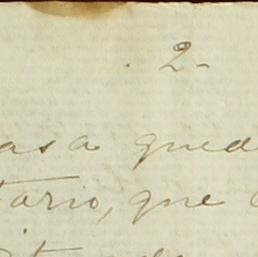 . 2 -
asa qued
tario, que